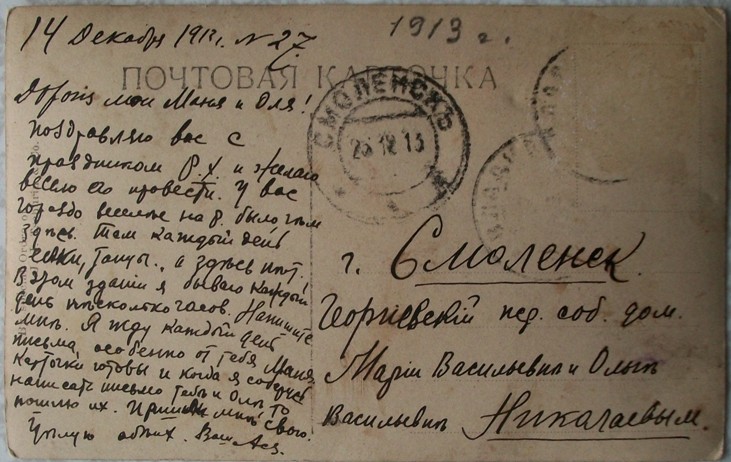 14 Декабря 1913 г. N 27
1913 г.
ПОЧТОВАЯ КАРТОЧКА
СМОЛЕНСКЪ
23 12 13
Дорогія мои Маня и Оля!
поздравляю вас с
праздником Р. Х. и желаю
весело его провести. У вас
гораздо веселее на Р. было чѣм
здѣсь. Там каждый день
елки, танцы, а здѣсь нѣт.
В этом зданіи я бываю каждый
день нѣсколько часов. Напишите
мнѣ. Я жду каждый день
письма, особенно от тебя Маня.
Карточки готовы и когда я соберусь
написать письмо тебѣ и Олѣ то
пошлю их. Пришли мнѣ свою.
Цѣлую обѣих. Ваш
г. Смоленск.
Георгіевскій пер. соб. дом.
Маріи Васильевнѣ и Ольгѣ
Васильевнѣ Николаевым.